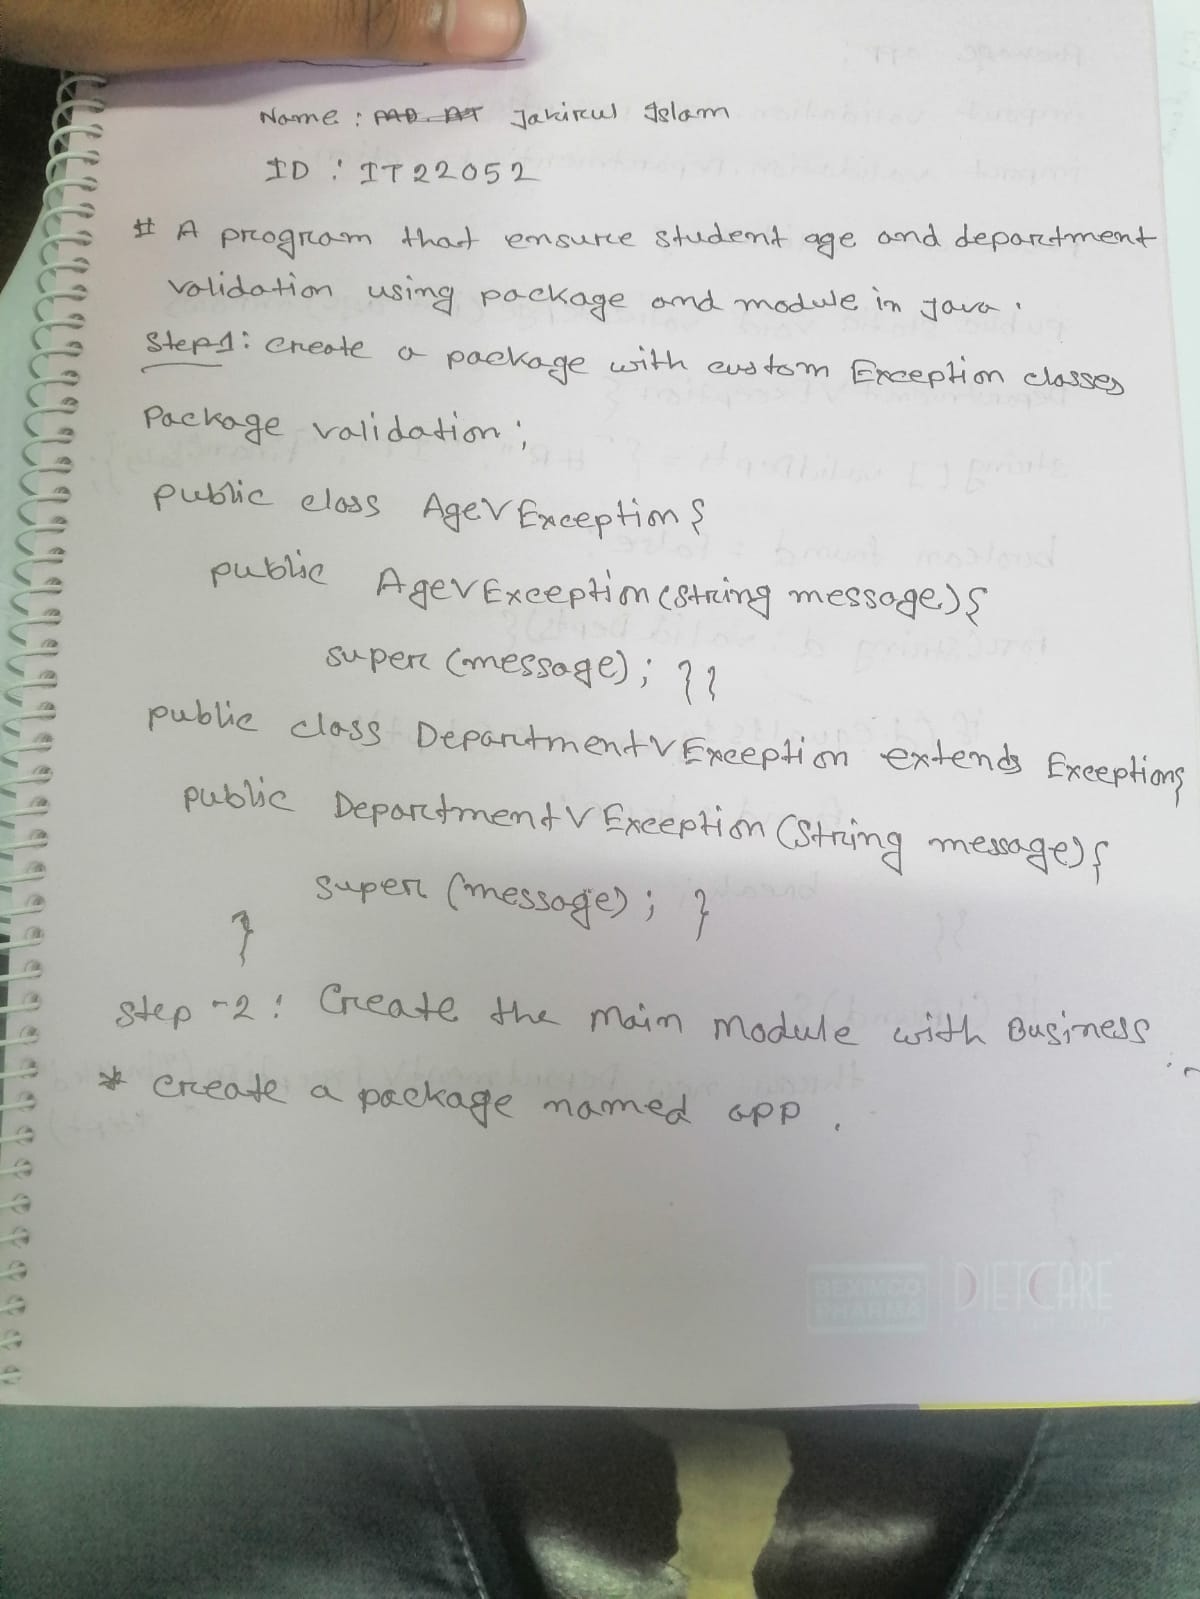 Name : Jakirul Islam
ID : IT22052
# A program that ensure student age and department
validation using package and module in Java.
Step1: Create a package with custom Exception classes
Package validation;
public class AgeVException{
public AgeVException(String message){
super(message); }}
public class DepartmentVException extends Exception{
public DepartmentVException(String message){
super(message); }
}
Step-2: Create the main module with Business
* Create a package named app.
BEXIMCO PHARMA | DIETCARE